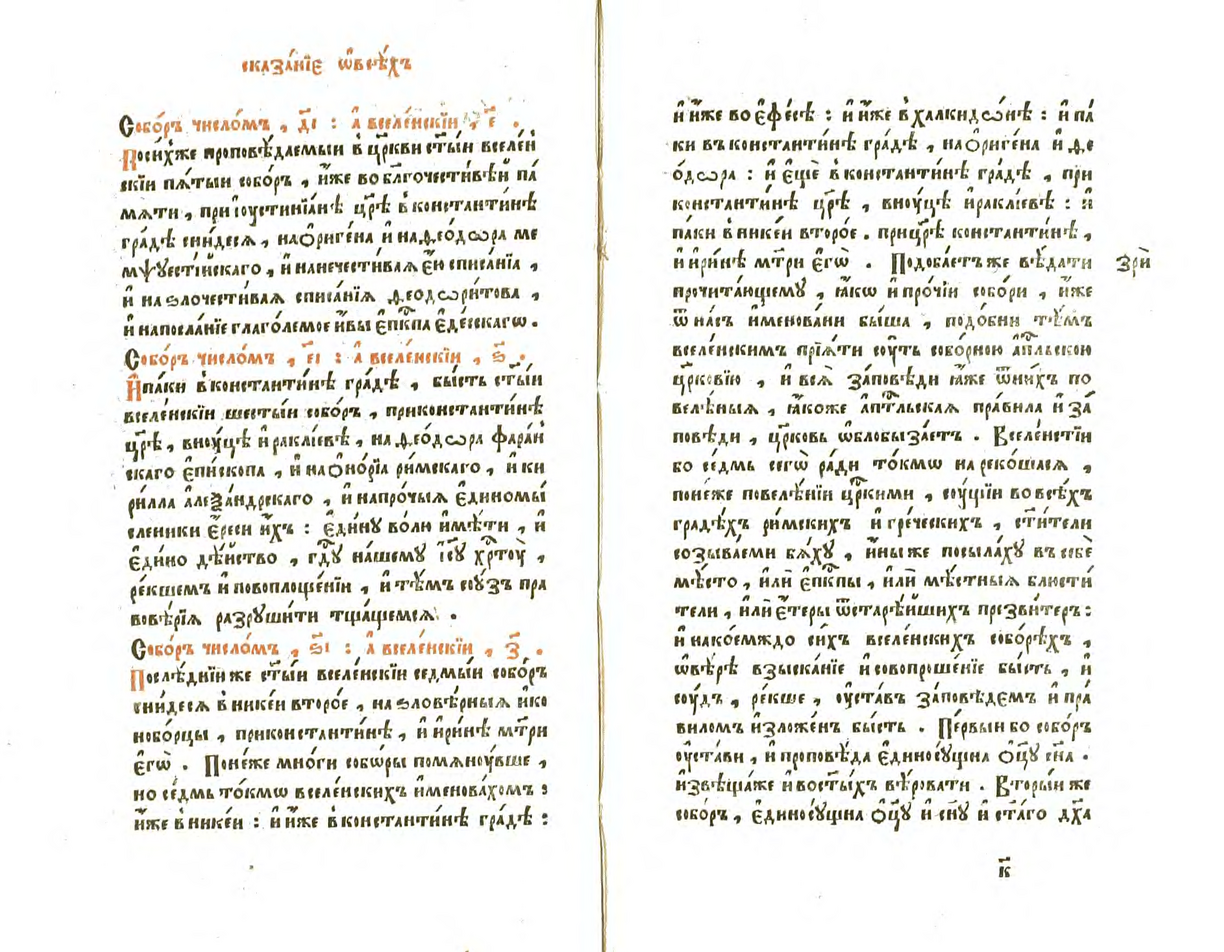 сказа́нїе ѡ҆всѣ́хъ
Собо́ръ число́мъ , д҃і : а҆ вселе́нскїи , е҃ .
Поси́хже проповѣ́даемыи в҆ цр҃кви ст҃ы́и вселе́н
скїи пѧ́тыи собо́ръ , и҆́же во бл҃гочести́вѣй па́
мѧти , при і҆оустинїа́нѣ цр҃ѣ̀ в҆ константи́нѣ
гра́дѣ сни́десѧ , на О҆риге́на и҆ на ѳео́дѡра ме
мѱуести́искаго , и҆ нанечести́ваѧ є҆ю̀ списа́нїа ,
и҆ на ѕлочести́ваѧ списа́нїѧ ѳеодѡри́това ,
и҆ напосла́нїе глаго́лемое и҆́вы є҆пк҇па є҆де́сскагѡ .
Собо́ръ число́мъ , е҃і : а҆ вселе́нскїи , ѕ҃ .
И҆паки в҆константи́нѣ гра́дѣ , бы́сть ст҃ы́и
вселе́нскїи шесты́и собо́ръ , приконстанти́нѣ
цр҃ѣ̀ , вноу́цѣ и҆ракли́евѣ , на ѳео́дѡра фара́н
скаго є҆пи́скопа , и҆ на О҆но́рїа ри́мскаго , и҆ ки
ри́лла а҆леѯа́ндрскаго , и҆ напро́чыѧ є҆диномы́
сленики є҆́реси и҆́хъ : є҆ди́ну во́лю и҆мѣ́ти , и҆
є҆ди́но дѣ́йство , гд҇у на́шему і҆с҃у хр҇тоу̀ ,
ре́кшемъ и҆ повоплоще́нїи , и҆ тѣ́мъ сою́зъ пра
вовѣ́рїѧ разруши́ти тща́щемсѧ .
Собо́ръ число́мъ , ѕ҃і : а҆ вселе́нскїи , з҃ .
Послѣ́днїи же ст҃ы́и вселе́нскїи седмы́и собо́ръ
сни́десѧ в҆ нике́и второ́е , на ѕловѣ́рныѧ и҆ко
нобо́рцы , приконстанти́нѣ , и҆ и҆ри́нѣ мт҃ри
є҆гѡ̀ . Поне́же мно́ги собѡ́ры помѧноу́вше ,
но се́дмь то́кмѡ вселе́нскихъ и҆менова́хомъ :
и҆́же в҆ нике́и : и҆ и҆́же в҆константи́нѣ гра́дѣ :
и҆ и҆́же во є҆фе́сѣ : и҆ и҆́же в҆ халкидѡ́нѣ : и҆ па́
ки въ константи́нѣ гра́дѣ , на О҆риге́на и҆ ѳе
о́дѡра : и҆ є҆щѐ в҆ константи́нѣ гра́дѣ , при
константи́нѣ цр҃ѣ̀ , вноу́цѣ и҆ракли́евѣ : и҆
па́ки в҆ нике́и второ́е . при цр҃ѣ̀ константи́нѣ ,
и҆ и҆ри́нѣ мт҃ри є҆гѡ̀ . Подоба́етъ же вѣ́дати
зрѝ
прочита́ющему , ꙗ҆́кѡ и҆ про́чїи собо́ри , и҆́же
ѿ на́съ и҆менова́ни бы́ша , подо́бни тѣ́мъ
вселе́нскимъ прїѧ́ти соу́ть собо́рною а҆п҇льскою
цр҃ковїю , и҆ всѧ̀ за́повѣди ꙗ҆́же ѿни́хъ по
велѣ́ныѧ , ꙗ҆́коже а҆п҇тльская пра́вила и҆ за́
повѣди , цр҃ковь ѡ҆блобыза́етъ . Вселе́нстїи
бо се́дмь сегѡ̀ ра́ди то́кмѡ нареко́шасѧ ,
поне́же повелѣ́нїи цр҇кими , соу́щїи во всѣ́хъ
гра́дѣхъ ри́мскихъ и҆ гре́ческихъ , ст҃и́тели
созыва́еми бѧ́ху , и҆́ныѧ же посыла́ху въ себѐ
мѣ́сто , и҆лѝ є҆пк҇пы , и҆лѝ мѣ́стныѧ блюсти́
тели , и҆лѝ є҆́теры ѿстарѣ́йшихъ презви́теръ :
и҆ накое́мждо си́хъ вселе́нскихъ собо́рѣхъ ,
ѡ҆вѣ́рѣ взыска́нїе и҆ совопроше́нїе бы́сть , и҆
соу́дъ , ре́кше , оу҆ста́въ за́повѣдемъ и҆ пра́
виломъ и҆зложе́нъ бы́сть . Пе́рвыи бо собо́ръ
оу҆ста́ви , и҆ проповѣ́да є҆диносу́щна О҆ц҃у сн҃а .
и҆звѣща́же и҆ во ст҃ы́хъ вѣ́ровати . Вторы́и же
собо́ръ , є҆диносу́щна О҆ц҃у и҆ сн҃у и҆ ст҃а́го дх҃а
к҃